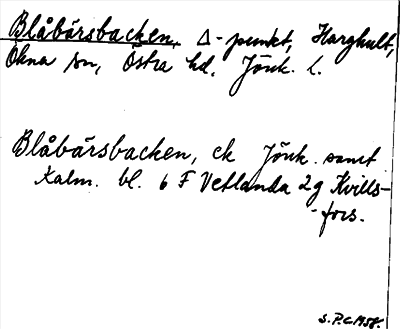 Blåbärsbacken, Δ-punkt, Harghult,
Ökna sn, Östra hd. Jönk. l.
Blåbärsbacken, ek Jönk. samt
Kalm. bl. 6 F Vetlanda 2g Kvills-
-fors.
S.P.C. 1958.